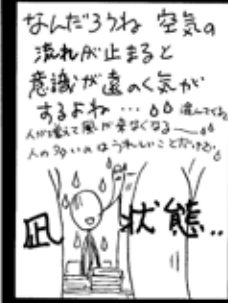 なんだろうね 空気の
流れが止まると
意識が遠のく気が
するよね…
人が増えて風が来なくなる
人の多いのはうれしいことだけど
凪状態‥